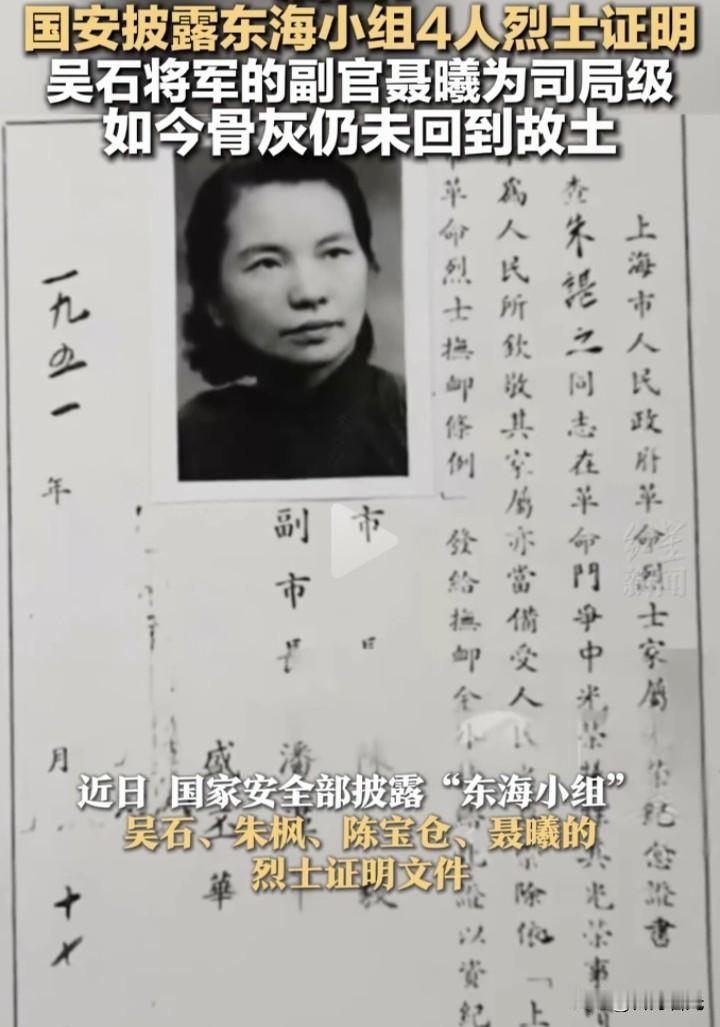 国安披露东海小组4人烈士证明
吴石将军的副官聂曦为司局级
如今骨灰仍未回到故土
上海市人民政府革命烈士家属 荣纪念證書
查朱諶之同志在革命鬥爭中光荣 其光荣事
為人民所欽敬其家属亦當備受人 除依「上
市革命烈士撫卹條例」發給撫卹金 證以资纪
市
副市長 潘
盛 華
一九五一年 月 十七
红星新闻
近日 国家安全部披露“东海小组”
吴石、朱枫、陈宝仓、聂曦的
烈士证明文件